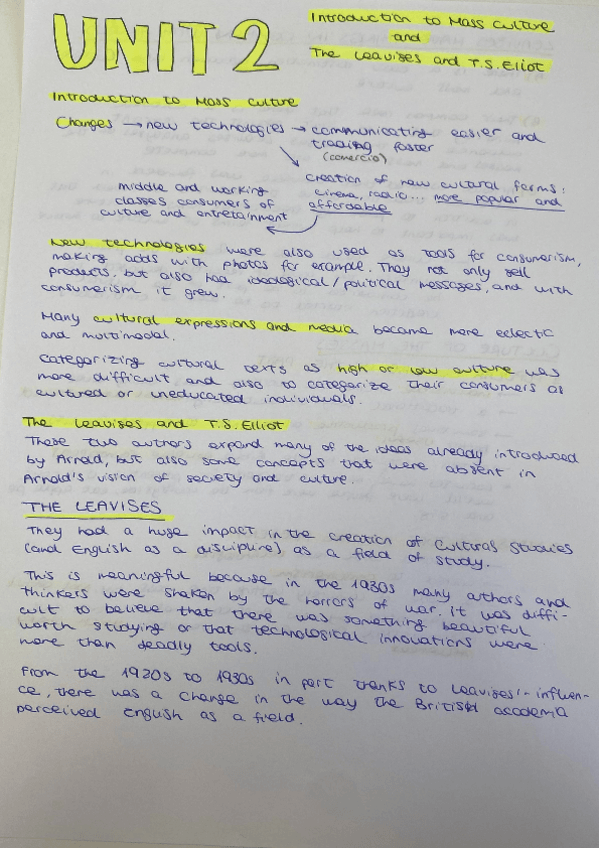 UNIT 2
Introduction to Mass Culture
and
The Leavises and T.S. Eliot
Introduction to Mass Culture
Changes → new technologies → communicating easier and
trading faster
(comercio)
creation of new cultural forms:
cinema, radio... more popular and
affordable
middle and working
classes consumers of
culture and entretainment
New technologies were also used as tools for consumerism,
making adds with photos for example. They not only sell
products, but also had ideological/political messages, and with
consumerism it grew.
Many cultural expressions and media became more eclectic
and multimodal.
Categorizing cultural texts as high or low culture was
more difficult and also to categorize their consumers as
cultured or uneducated individuals.
The Leavises and T.S. Elliot
These two authors expand many of the ideas already introduced
by Arnold, but also some concepts that were absent in
Arnold's vision of society and culture.
THE LEAVISES
They had a huge impact in the creation of Cultural Studies
(and English as a discipline) as a field of study.
This is meaningful because in the 1930s many authors and
thinkers were shaken by the horrors of war. It was diffi-
cult to believe that there was something beautiful
worth studying or that technological innovations were
more than deadly tools.
From the 1920s to 1930s in part thanks to Leavises'- influen-
ce, there was a change in the way the British academa
perceived English as a field.